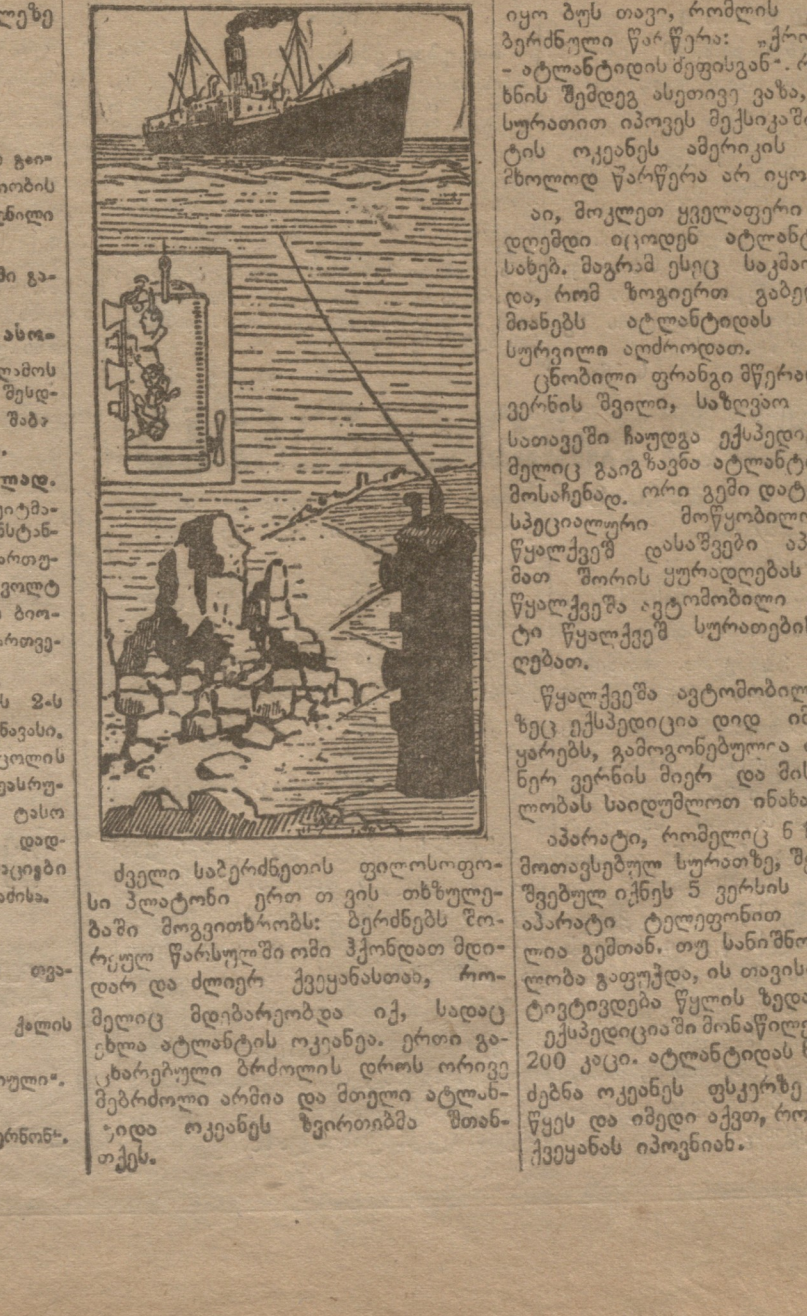 ლეზე
გაი-
იობის
ში გა-
ასო-
ლამოს
შესდ-
შაბა-
ლად.
ეიტმა-
ნსტან-
ართუ-
ვოლტ
ბიო-
ართვე-
ს 2-ს
ნავასი.
ცოლის
ეასრუ-
ტასო
დად-
აციები
აძისა.
თვა-
ქალის
ერნონ“.
ძველი საბერძნეთის ფილოსოფო-
სი პლატონი ერთ თ ვის თხზულე-
ბაში მოგვითხრობს: ბერძნებს შო-
რეულ წარსულში ომი ჰქონდათ მდი-
დარ და ძლიერ ქვეყანასთან, რო-
მელიც მდებარეობდა იქ, სადაც
ეხლა ატლანტის ოკეანეა. ერთი გა-
ცხარებული ბრძოლის დროს ორივე
მებრძოლი არმია და მთელი ატლან-
ტიდა ოკეანეს ზვირთიბმა შთან-
თქეს.
იყო ბუს თავი, რომლის
ბერძნული წარწერა: „ქრო
- ატლანტიდის მეფისგან“. რ
ხნის შემდეგ ასეთივე ვაზა,
სურათით იპოვეს მექსიკაში
ტის ოკეანეს ამერიკის
მხოლოდ წარწერა არ იყო
აი, მოკლეთ ყველაფერი
დღემდი იცოდენ ატლანტ
სახებ. მაგრამ ესეც საკმაო
და, რომ ზოგიერთ გაბედ
მიანებს ატლანტიდას
სურვილი აღძროდათ.
ცნობილი ფრანგი მწერა
ვერნის შვილი, საზღვაო
სათავეში ჩაუდგა ექსპედი
მელიც გაიგზავნა ატლანტი
მოსაჩენად. ორი გემი დატ
სპეციალური მოწყობილო
წყალქვეშ დასაშვები აპ
მათ შორის ყურადღებას
წყალქვეშა ავტომობილი
ტი წყალქვეშ სურათების
ღებათ.
წყალქვეშა ავტომობილ
ზეც ექსპედიცია დიდ იმ
ყარებს, გამოგონებულია
ნერ ვერნის მიერ და მის
ლობას საიდუმლოთ ინახა
აპარატი, რომელიც ნ
მოთავსებულ სურათზე, შე
შვებულ იქნეს 5 ვერსის
აპარატი ტელეფონით
ლია გემთან. თუ სანიშნო
ლობა გაფუჭდა, ის თავის
ტივტივდება წყლის ზედა
ექსპედიციაში მონაწილე
200 კაცი. ატლანტიდას
ძებნა ოკეანეს ფსკერზე
წყეს და იმედი აქვთ, რო
ქვეყანას იპოვნიან.